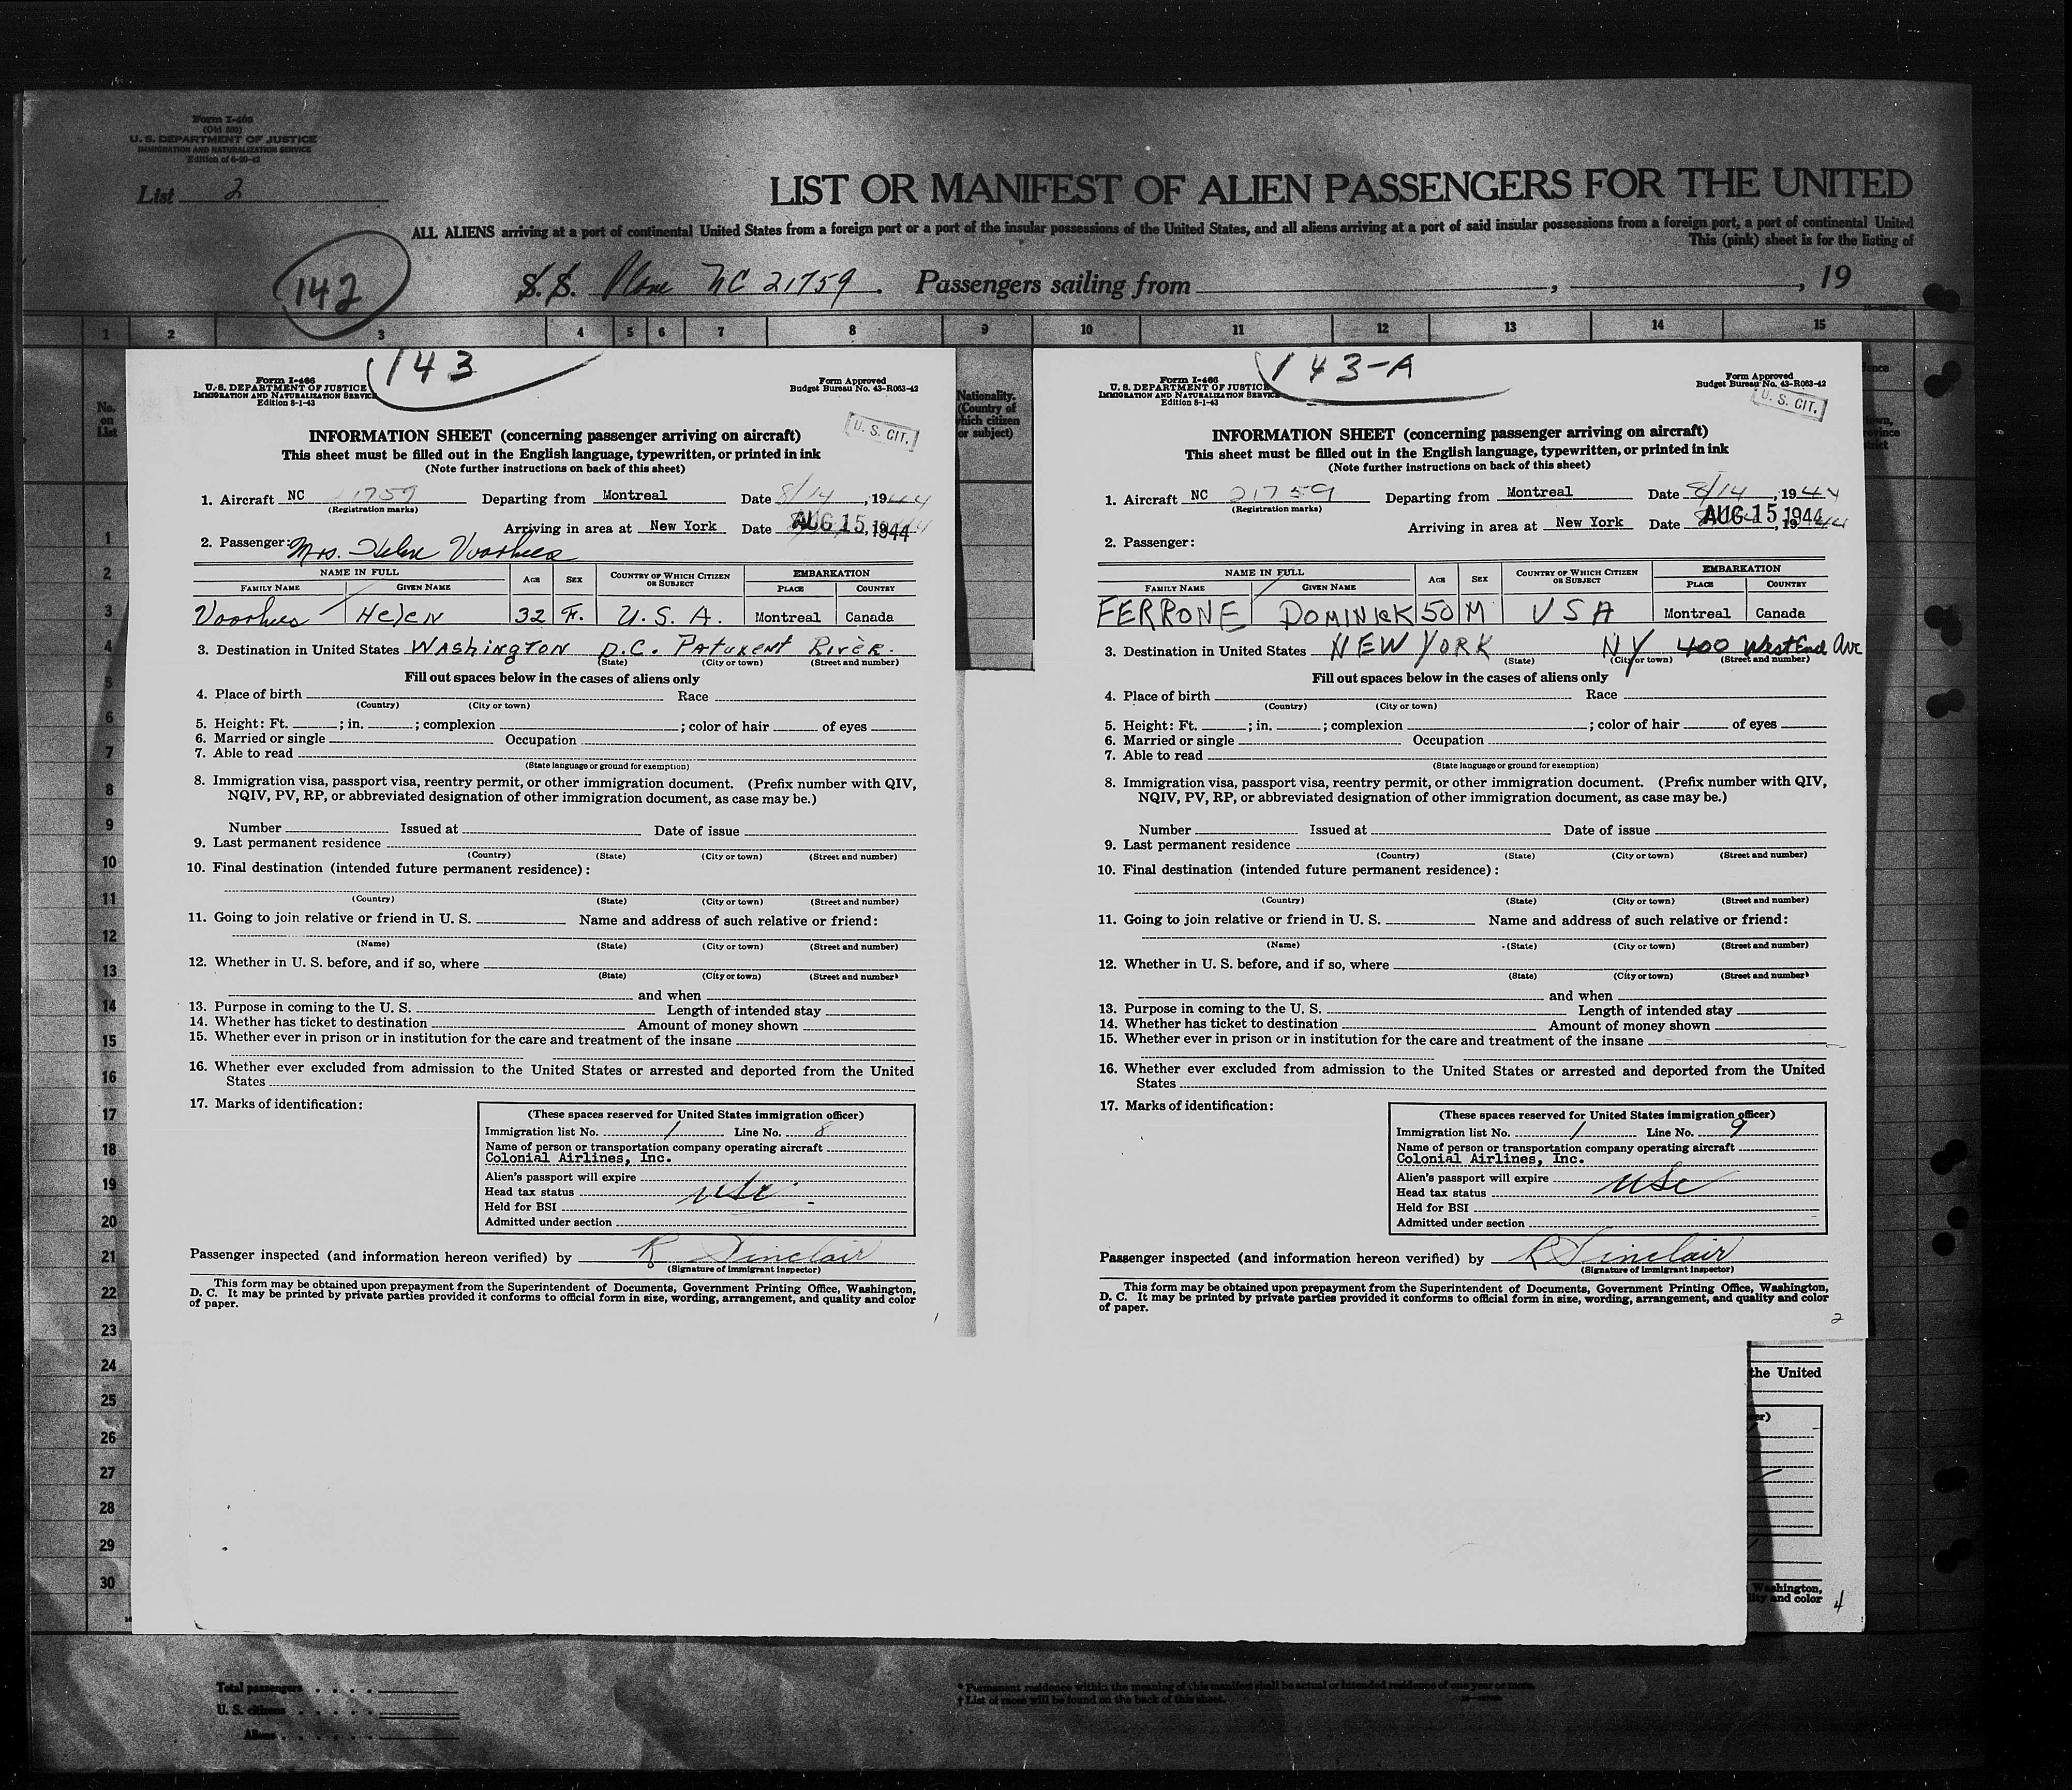 Form I-466
(Old 500)
U. S. DEPARTMENT OF JUSTICE
IMMIGRATION AND NATURALIZATION SERVICE
List 2
LIST OR MANIFEST OF ALIEN PASSENGERS FOR THE UNITED
ALL ALIENS arriving at a port of continental United States from a foreign port or a port of the insular possessions of the United States, and all aliens arriving at a port of said insular possessions from a foreign port, a port of continental United
This (pink) sheet is for the listing of
142
S.S. Plane NC 21759. Passengers sailing from , , 19
1 2 3 4 5 6 7 8 9 10 11 12 13 14 15
No.
on
List
Nationality.
(Country of
which citizen
or subject)
1
2
3
4
5
6
7
8
9
10
11
12
13
14
15
16
17
18
19
20
21
22
23
24
25
26
27
28
29
30
143
Form I-466
U. S. DEPARTMENT OF JUSTICE
IMMIGRATION AND NATURALIZATION SERVICE
Edition 8-1-43
Form Approved
Budget Bureau No. 43-R063-42
U. S. CIT.
INFORMATION SHEET (concerning passenger arriving on aircraft)
This sheet must be filled out in the English language, typewritten, or printed in ink
(Note further instructions on back of this sheet)
1. Aircraft NC 21759 Departing from Montreal Date 8/14, 1944
(Registration marks)
Arriving in area at New York Date AUG 15, 1944
2. Passenger: Mrs. Helen Voorhees
NAME IN FULL AGE SEX COUNTRY OF WHICH CITIZEN OR SUBJECT EMBARKATION
FAMILY NAME GIVEN NAME PLACE COUNTRY
Voorhees Helen 32 F. U. S. A. Montreal Canada
3. Destination in United States Washington D.C. Patuxent River.
(State) (City or town) (Street and number)
Fill out spaces below in the cases of aliens only
4. Place of birth Race
(Country) (City or town)
5. Height: Ft. ; in. ; complexion ; color of hair of eyes
6. Married or single Occupation
7. Able to read
(State language or ground for exemption)
8. Immigration visa, passport visa, reentry permit, or other immigration document. (Prefix number with QIV,
NQIV, PV, RP, or abbreviated designation of other immigration document, as case may be.)
Number Issued at Date of issue
9. Last permanent residence
(Country) (State) (City or town) (Street and number)
10. Final destination (intended future permanent residence):
(Country) (State) (City or town) (Street and number)
11. Going to join relative or friend in U. S. Name and address of such relative or friend:
(Name) (State) (City or town) (Street and number)
12. Whether in U. S. before, and if so, where
(State) (City or town) (Street and number)
and when
13. Purpose in coming to the U. S. Length of intended stay
14. Whether has ticket to destination Amount of money shown
15. Whether ever in prison or in institution for the care and treatment of the insane
16. Whether ever excluded from admission to the United States or arrested and deported from the United
States
17. Marks of identification:
(These spaces reserved for United States immigration officer)
Immigration list No. 1 Line No. 8
Name of person or transportation company operating aircraft
Colonial Airlines, Inc.
Alien's passport will expire
Head tax status usc
Held for BSI
Admitted under section
Passenger inspected (and information hereon verified) by R Sinclair
(Signature of Immigrant Inspector)
This form may be obtained upon prepayment from the Superintendent of Documents, Government Printing Office, Washington,
D. C. It may be printed by private parties provided it conforms to official form in size, wording, arrangement, and quality and color
of paper.
1
143-A
Form I-466
U. S. DEPARTMENT OF JUSTICE
IMMIGRATION AND NATURALIZATION SERVICE
Edition 8-1-43
Form Approved
Budget Bureau No. 43-R063-42
U. S. CIT.
INFORMATION SHEET (concerning passenger arriving on aircraft)
This sheet must be filled out in the English language, typewritten, or printed in ink
(Note further instructions on back of this sheet)
1. Aircraft NC 21759 Departing from Montreal Date 8/14, 1944
(Registration marks)
Arriving in area at New York Date AUG 15 1944
2. Passenger:
NAME IN FULL AGE SEX COUNTRY OF WHICH CITIZEN OR SUBJECT EMBARKATION
FAMILY NAME GIVEN NAME PLACE COUNTRY
FERRONE DOMINICK 50 M USA Montreal Canada
3. Destination in United States NEW YORK NY 400 West End Ave
(State) (City or town) (Street and number)
Fill out spaces below in the cases of aliens only
4. Place of birth Race
(Country) (City or town)
5. Height: Ft. ; in. ; complexion ; color of hair of eyes
6. Married or single Occupation
7. Able to read
(State language or ground for exemption)
8. Immigration visa, passport visa, reentry permit, or other immigration document. (Prefix number with QIV,
NQIV, PV, RP, or abbreviated designation of other immigration document, as case may be.)
Number Issued at Date of issue
9. Last permanent residence
(Country) (State) (City or town) (Street and number)
10. Final destination (intended future permanent residence):
(Country) (State) (City or town) (Street and number)
11. Going to join relative or friend in U. S. Name and address of such relative or friend:
(Name) (State) (City or town) (Street and number)
12. Whether in U. S. before, and if so, where
(State) (City or town) (Street and number)
and when
13. Purpose in coming to the U. S. Length of intended stay
14. Whether has ticket to destination Amount of money shown
15. Whether ever in prison or in institution for the care and treatment of the insane
16. Whether ever excluded from admission to the United States or arrested and deported from the United
States
17. Marks of identification:
(These spaces reserved for United States immigration officer)
Immigration list No. 1 Line No. 9
Name of person or transportation company operating aircraft
Colonial Airlines, Inc.
Alien's passport will expire
Head tax status usc
Held for BSI
Admitted under section
Passenger inspected (and information hereon verified) by R Sinclair
(Signature of Immigrant Inspector)
This form may be obtained upon prepayment from the Superintendent of Documents, Government Printing Office, Washington,
D. C. It may be printed by private parties provided it conforms to official form in size, wording, arrangement, and quality and color
of paper.
2
the United
er)
Washington,
lity and color
4
Total passengers
U. S. citizens
Aliens
* Permanent residence within the meaning of this manifest shall be actual or intended residence of one year or more.
† List of races will be found on the back of this sheet.